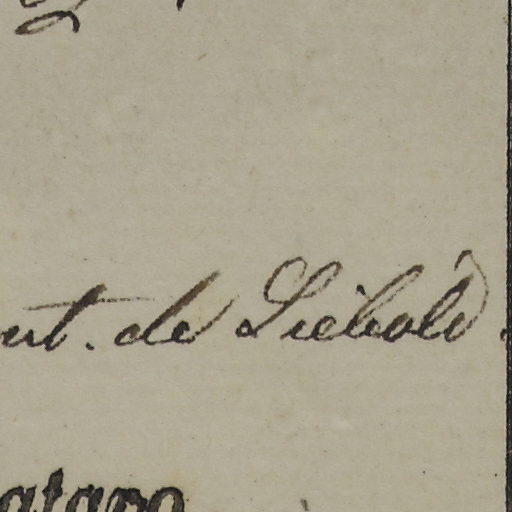 ut. de Siebold.
ataro